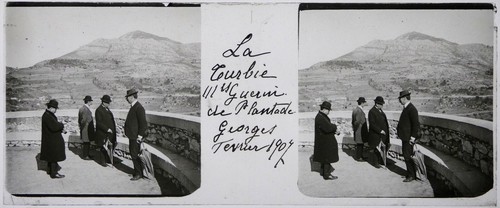 La
Turbie
Mrs Guerin
de Plantade
Georges
Fevrier 1907